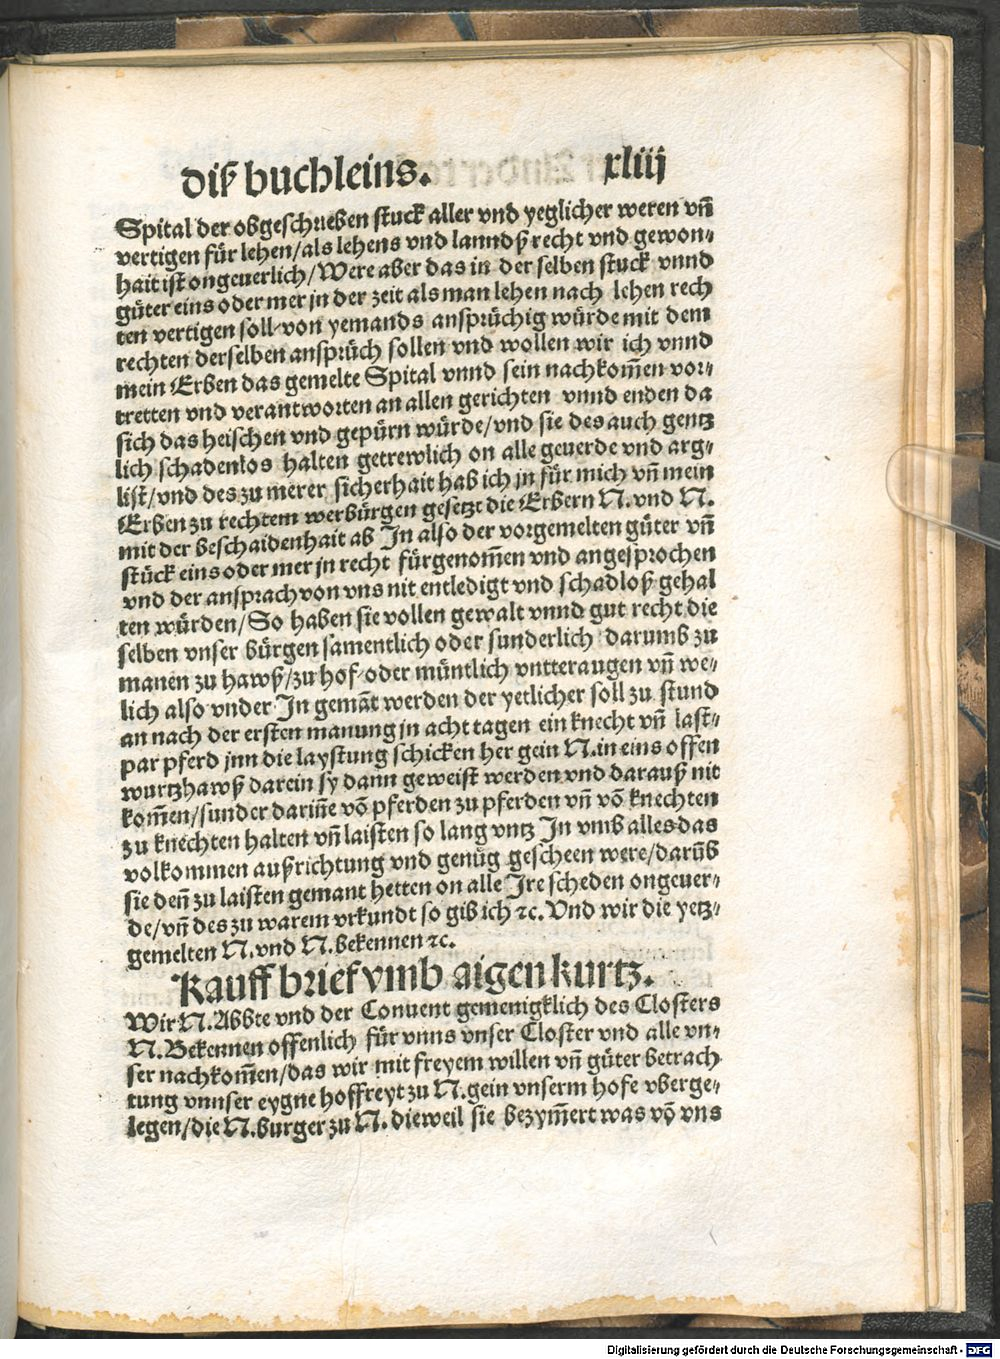 diß buchleins. xliij
Spital der obgeschrieben stuck aller vnd yeglicher weren vñ
vertigen für lehen/als lehens vnd lanndß recht vnd gewon⸗
hait ist ongeuerlich/Were aber das in der selben stuck vnnd
güter eins oder mer jn der zeit als man lehen nach lehen rech
ten vertigen soll/von yemands ansprüchig würde mit dem
rechten derselben ansprüch sollen vnd wollen wir ich vnnd
mein Erben das gemelte Spital vnnd sein nachkom̃en vor⸗
tretten vnd verantworten an allen gerichten vnnd enden da
sich das heischen vnd gepürn würde/vnd sie des auch gentz
lich schadenlos halten getrewlich on alle geuerde vnd arg⸗
list/vnd des zu merer sicherhait hab ich jn für mich vñ mein
Erben zu rechtem werbürgen gesetzt die Erbern N. vnd N.
mit der beschaidenhait ab In also der vorgemelten güter vñ
stück eins oder mer jn recht fürgenom̃en vnd angesprochen
vnd der ansprach von vns nit entledigt vnd schadloß gehal
ten würden/So haben sie vollen gewalt vnnd gut recht die
selben vnser bürgen samentlich oder sunderlich darumb zu
manen zu hawß/zu hof/oder müntlich vntteraugen vñ we⸗
lich also vnder In gemãt werden der yetlicher soll zu stund
an nach der ersten manung jn acht tagen ein knecht vñ last⸗
par pferd jnn die laystung schicken her gein N. in eins offen
wurtzhawß darein sy dann geweist werden vnd darauß nit
kom̃en/sunder dariñe võ pferden zu pferden vñ võ knechten
zu knechten halten vñ laisten so lang vntz In vmb alles das
volkommen außrichtung vnd genüg gescheen were/darũb
sie deñ zu laisten gemant hetten on alle Ire scheden ongeuer⸗
de/vñ des zu warem vrkundt so gib ich ꝛc. Vnd wir die yetz⸗
gemelten N. vnd N. bekennen ꝛc.
Kauff brief vmb aigen kurtz.
Wir N. Abbte vnd der Conuent gemenigklich des Closters
N. Bekennen offenlich für vnns vnser Closter vnd alle vn⸗
ser nachkom̃en/das wir mit freyem willen vñ güter betrach
tung vnnser eygne hoffreyt zu N. gein vnserm hofe vberge⸗
legen/die N. burger zu N. dieweil sie bezym̃ert was võ vns
Digitalisierung gefördert durch die Deutsche Forschungsgemeinschaft - DFG